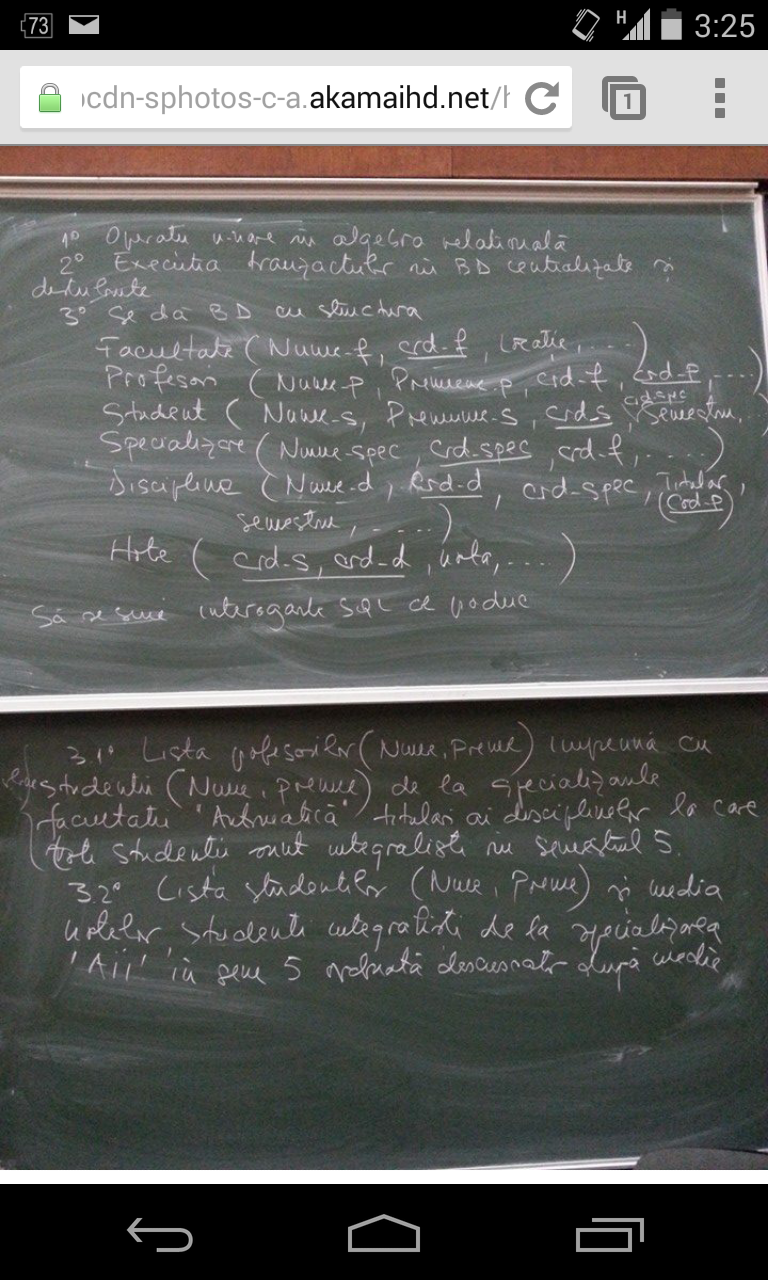 73
H
3:25
ocdn-sphotos-c-a.akamaihd.net/h
1
1º Operatii unare in algebra relatională
2º Executia tranzactiilor in BD centralizate și
distribuite
3º Se dă BD cu structura
Facultate (Nume-f, cod-f, Locatie, ....)
Profesori (Nume-p, Prenume-p, cod-f, cod-p, ....)
cod-spec
Student (Nume-s, Prenume-s, cod-s, Semestru, ..)
Specializare (Nume-spec, cod-spec, cod-f, ....)
Disciplina (Nume-d, Cod-d, cod-spec, Titular,
(Cod-p)
semestru, ....)
Note (cod-s, cod-d, nota, ....)
Să se scrie interogarile SQL ce produc
3.1º Lista profesorilor (Nume, Prenume) împreună cu
studentii (Nume, prenume) de la specializarile
facultatii "Automatică" titulari ai disciplinelor la care
toti studentii sunt integralisti in semestrul 5.
3.2º Lista studentilor (Nume, Prenume) și media
notelor studenti integralisti de la specializarea
'AII' în sem 5 ordonată descrescator după medie